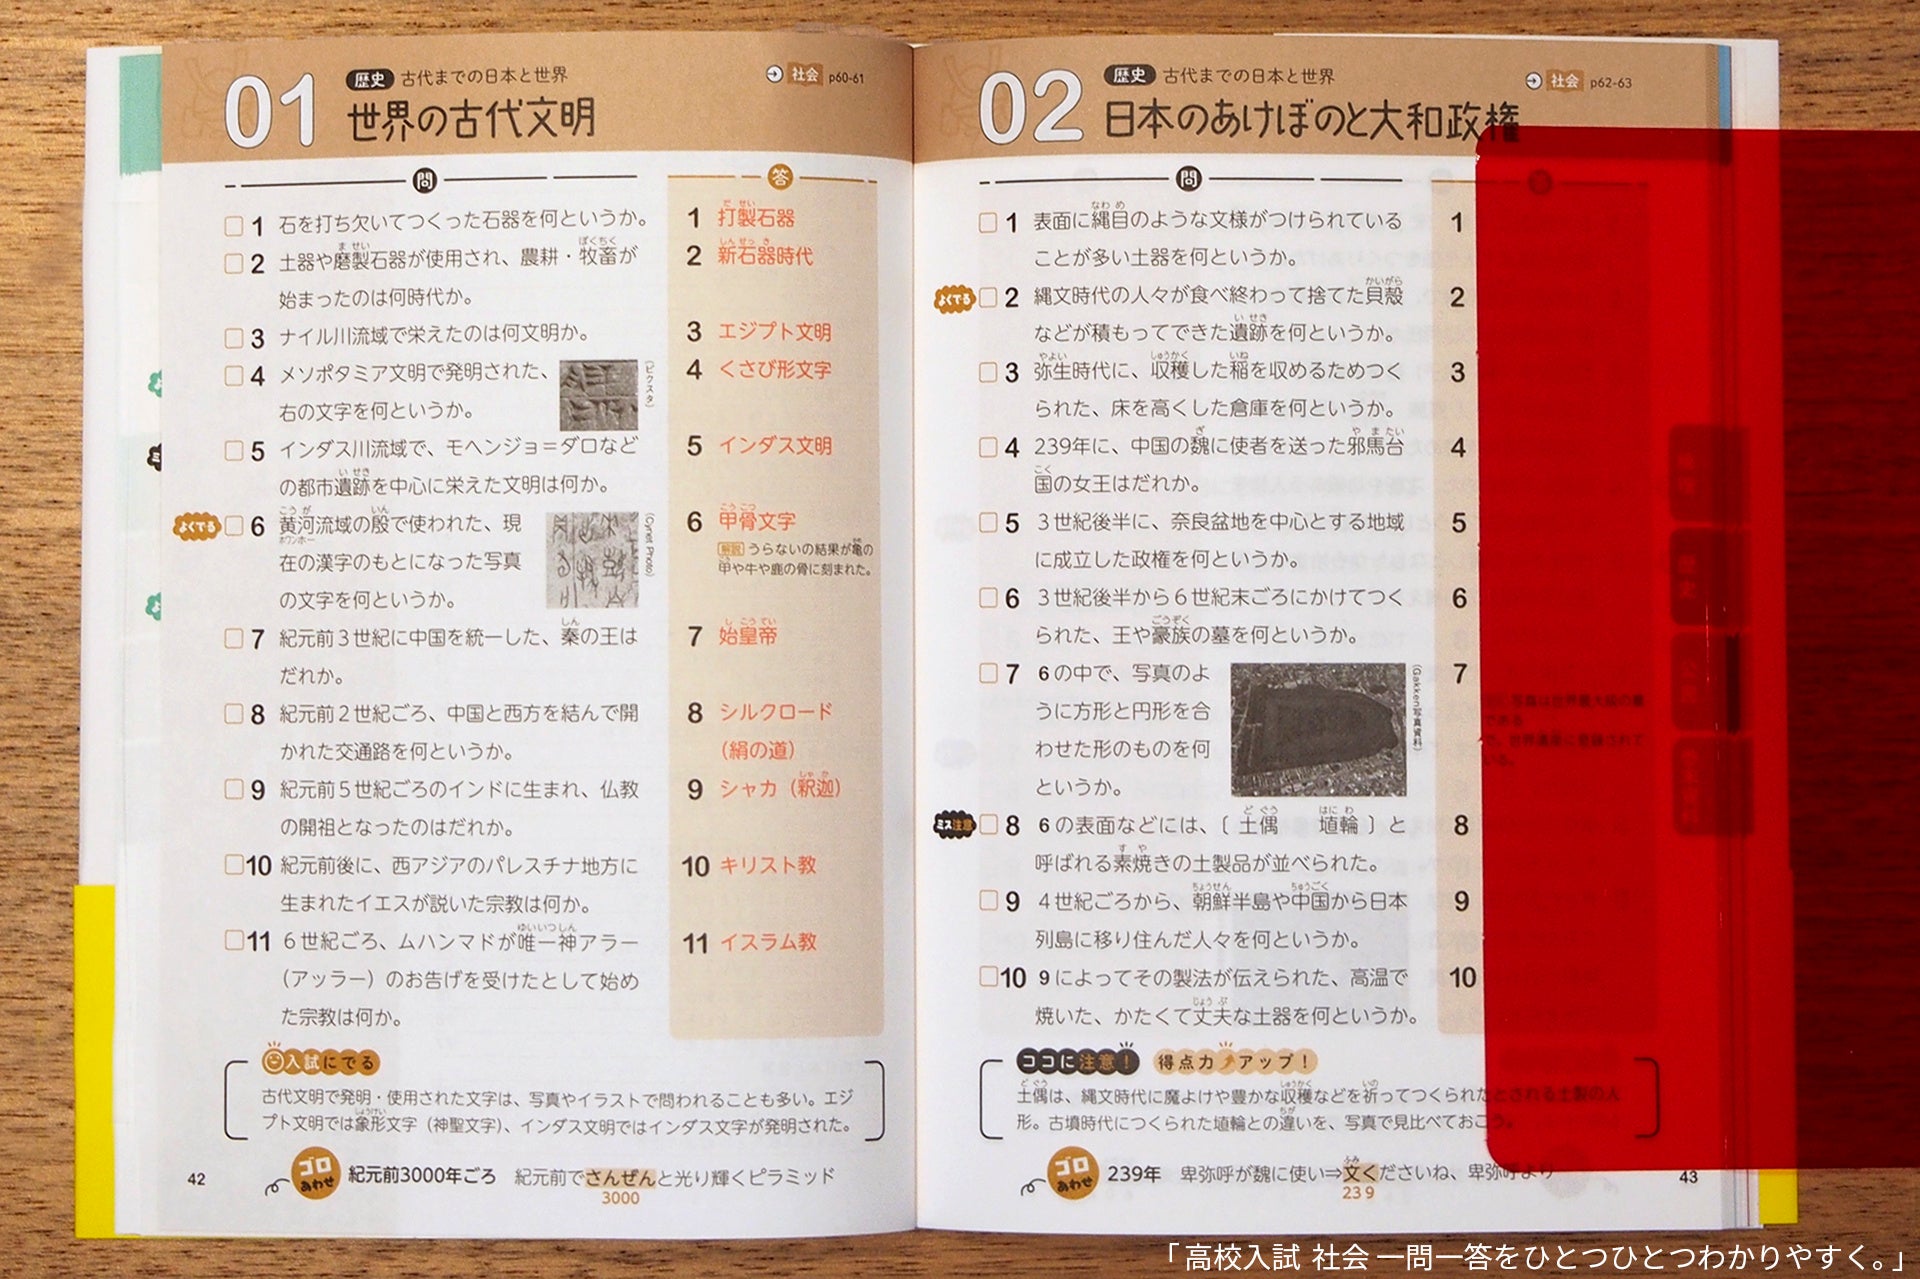 01
歴史 古代までの日本と世界
社会 p60-61
世界の古代文明
問
答
1 石を打ち欠いてつくった石器を何というか。
1 打製石器
2 土器や磨製石器が使用され、農耕・牧畜が
始まったのは何時代か。
2 新石器時代
3 ナイル川流域で栄えたのは何文明か。
3 エジプト文明
4 メソポタミア文明で発明された、
右の文字を何というか。
(ピクスタ)
4 くさび形文字
5 インダス川流域で、モヘンジョ=ダロなど
の都市遺跡を中心に栄えた文明は何か。
5 インダス文明
よくでる
6 黄河流域の殷で使われた、現
在の漢字のもとになった写真
の文字を何というか。
(Cynet Photo)
6 甲骨文字
解説 うらないの結果が亀の
甲や牛や鹿の骨に刻まれた。
7 紀元前3世紀に中国を統一した、秦の王は
だれか。
7 始皇帝
8 紀元前2世紀ごろ、中国と西方を結んで開
かれた交通路を何というか。
8 シルクロード
(絹の道)
9 紀元前5世紀ごろのインドに生まれ、仏教
の開祖となったのはだれか。
9 シャカ(釈迦)
10 紀元前後に、西アジアのパレスチナ地方に
生まれたイエスが説いた宗教は何か。
10 キリスト教
11 6世紀ごろ、ムハンマドが唯一神アラー
(アッラー)のお告げを受けたとして始め
た宗教は何か。
11 イスラム教
入試にでる
古代文明で発明・使用された文字は、写真やイラストで問われることも多い。エジ
プト文明では象形文字(神聖文字)、インダス文明ではインダス文字が発明された。
42
ゴロあわせ 紀元前3000年ごろ 紀元前でさんぜんと光り輝くピラミッド
3000
02
歴史 古代までの日本と世界
社会 p62-63
日本のあけぼのと大和政権
問
1 表面に縄目のような文様がつけられている
ことが多い土器を何というか。
1
よくでる
2 縄文時代の人々が食べ終わって捨てた貝殻
などが積もってできた遺跡を何というか。
2
3 弥生時代に、収穫した稲を収めるためつく
られた、床を高くした倉庫を何というか。
3
4 239年に、中国の魏に使者を送った邪馬台
国の女王はだれか。
4
5 3世紀後半に、奈良盆地を中心とする地域
に成立した政権を何というか。
5
6 3世紀後半から6世紀末ごろにかけてつく
られた、王や豪族の墓を何というか。
6
7 6の中で、写真のよ
うに方形と円形を合
わせた形のものを何
というか。
(Gakken写真資料)
7
写真は世界最大級の墓
である
で、世界遺産に登録されて
いる。
ミス注意
8 6の表面などには、〔 土偶 埴輪 〕と
呼ばれる素焼きの土製品が並べられた。
8
9 4世紀ごろから、朝鮮半島や中国から日本
列島に移り住んだ人々を何というか。
9
10 9によってその製法が伝えられた、高温で
焼いた、かたくて丈夫な土器を何というか。
10
ココに注意! 得点力アップ!
土偶は、縄文時代に魔よけや豊かな収穫などを祈ってつくられたとされる土製の人
形。古墳時代につくられた埴輪との違いを、写真で見比べておこう。
ゴロあわせ 239年 卑弥呼が魏に使い⇒文くださいね、卑弥呼より
239
43
「高校入試 社会 一問一答をひとつひとつわかりやすく。」